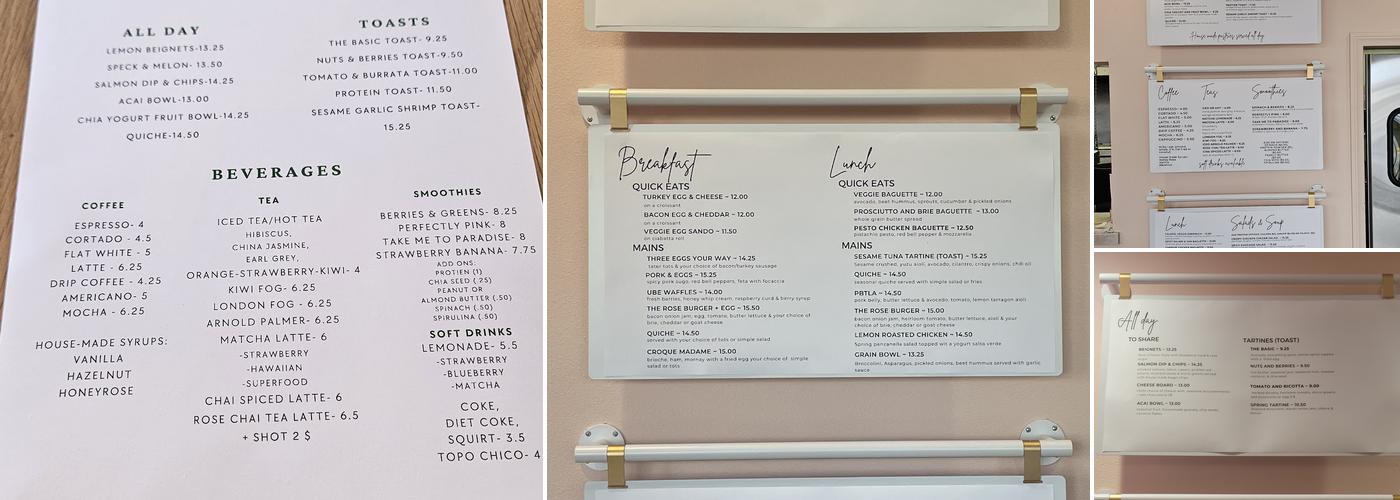 ALL DAY
LEMON BEIGNETS-13.25
SPECK & MELON- 13.50
SALMON DIP & CHIPS-14.25
ACAI BOWL-13.00
CHIA YOGURT FRUIT BOWL-14.25
QUICHE-14.50
TOASTS
THE BASIC TOAST- 9.25
NUTS & BERRIES TOAST-9.50
TOMATO & BURRATA TOAST-11.00
PROTEIN TOAST- 11.50
SESAME GARLIC SHRIMP TOAST-
15.25
BEVERAGES
COFFEE
ESPRESSO- 4
CORTADO - 4.5
FLAT WHITE - 5
LATTE - 6.25
DRIP COFFEE - 4.25
AMERICANO- 5
MOCHA - 6.25
HOUSE-MADE SYRUPS:
VANILLA
HAZELNUT
HONEYROSE
TEA
ICED TEA/HOT TEA
HIBISCUS,
CHINA JASMINE,
EARL GREY,
ORANGE-STRAWBERRY-KIWI- 4
KIWI FOG- 6.25
LONDON FOG - 6.25
ARNOLD PALMER- 6.25
MATCHA LATTE- 6
-STRAWBERRY
-HAWAIIAN
-SUPERFOOD
CHAI SPICED LATTE- 6
ROSE CHAI TEA LATTE- 6.5
+ SHOT 2 $
SMOOTHIES
BERRIES & GREENS- 8.25
PERFECTLY PINK- 8
TAKE ME TO PARADISE- 8
STRAWBERRY BANANA- 7.75
ADD ONS:
PROTIEN (1)
CHIA SEED (.25)
PEANUT OR
ALMOND BUTTER (.50)
SPINACH (.50)
SPIRULINA (.50)
SOFT DRINKS
LEMONADE- 5.5
-STRAWBERRY
-BLUEBERRY
-MATCHA
COKE,
DIET COKE,
SQUIRT- 3.5
TOPO CHICO- 4
Breakfast
QUICK EATS
TURKEY EGG & CHEESE ~ 12.00
on a croissant
BACON EGG & CHEDDAR ~ 12.00
on a croissant
VEGGIE EGG SANDO ~ 11.50
on ciabatta roll
MAINS
THREE EGGS YOUR WAY ~ 14.25
tater tots & your choice of bacon/turkey sausage
PORK & EGGS ~ 15.25
spicy pork sugo, red bell peppers, feta with focaccia
UBE WAFFLES ~ 14.00
fresh berries, honey whip cream, raspberry curd & berry syrup
THE ROSE BURGER + EGG ~ 15.50
bacon onion jam, egg, tomato, butter lettuce & your choice of
brie, cheddar or goat cheese
QUICHE ~ 14.50
served with your choice of tots or simple salad
CROQUE MADAME ~ 15.00
brioche, ham, mornay with a fried egg your choice of simple
salad or tots
Lunch
QUICK EATS
VEGGIE BAGUETTE ~ 12.00
avocado, beet hummus, sprouts, cucumber & pickled onions
PROSCIUTTO AND BRIE BAGUETTE ~ 13.00
whole grain butter spread
PESTO CHICKEN BAGUETTE ~ 12.50
pistachio pesto, red bell pepper & mozzarella
MAINS
SESAME TUNA TARTINE (TOAST) ~ 15.25
Sesame crushed, yuzu aioli, avocado, cilantro, crispy onions, chili oil
QUICHE ~ 14.50
seasonal quiche served with simple salad or fries
PBTLA ~ 14.50
pork belly, butter lettuce & avocado, tomato, lemon tarragon aioli
THE ROSE BURGER ~ 15.00
bacon onion jam, heirloom tomato, butter lettuce, aioli & your
choice of brie, cheddar or goat cheese
LEMON ROASTED CHICKEN ~ 14.50
Spring panzanella salad topped wit a yogurt salsa verde
GRAIN BOWL ~ 13.25
Broccolini, Asparagus, pickled onions, beet hummus served with garlic
sauce
House made pastries served all day
Coffee
ESPRESSO- 4.00
CORTADO- 4.50
FLAT WHITE - 5.00
LATTE - 6.25
AMERICANO - 5.00
DRIP COFFEE - 4.25
MOCHA - 6.25
Teas
LONDON FOG - 6.25
KIWI FOG - 6.25
soft drinks available
Smoothies
SPINACH & BERRIES - 8.25
PERFECTLY PINK - 8.00
TAKE ME TO PARADISE - 8.00
STRAWBERRY AND BANANA - 7.75
Lunch
Salads & Soup
All day
TO SHARE
BEIGNETS ~ 13.25
SALMON DIP & CHIPS ~ 14.25
CHEESE BOARD ~ 13.00
ACAI BOWL ~ 13.00
TARTINES (TOAST)
THE BASIC ~ 9.25
NUTS AND BERRIES ~ 9.50
TOMATO AND RICOTTA ~ 9.00
SPRING TARTINE ~ 10.50